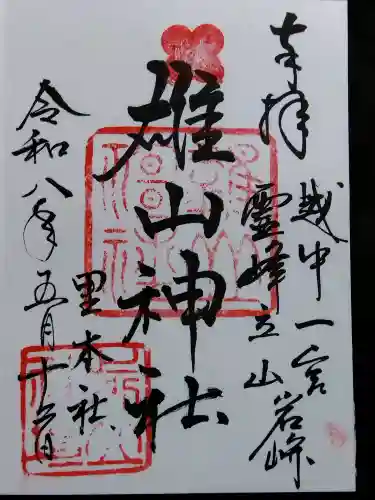 奉拝
越中一宮
霊峰立山岩峅
雄山神社
里本社
令和八年五月十六日